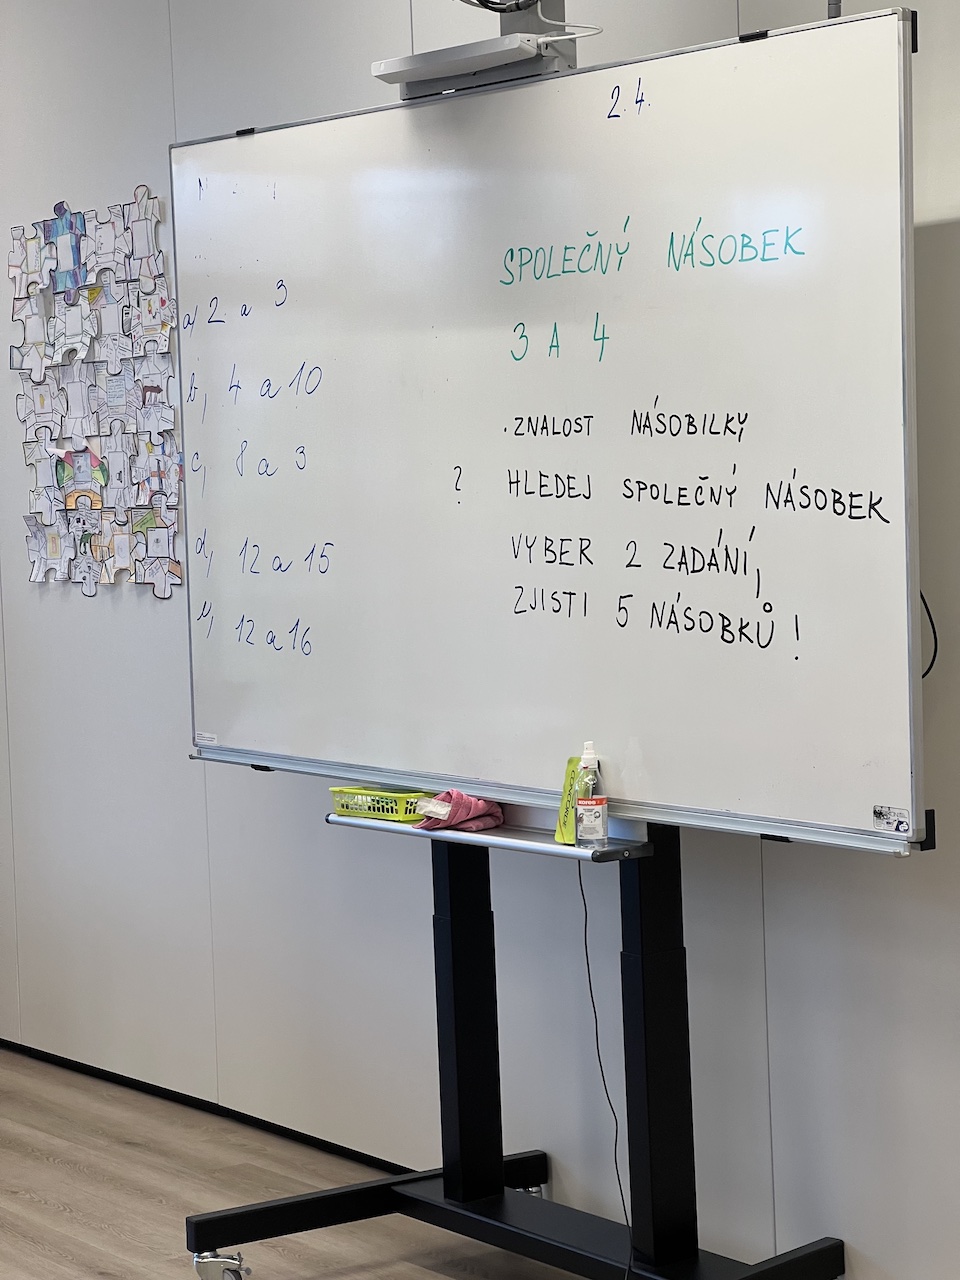 2.4.
a, 2 a 3
b, 4 a 10
c, 8 a 3
d, 12 a 15
12 a 16
SPOLEČNÝ NÁSOBEK
3 A 4
· ZNALOST NÁSOBILKY
? HLEDEJ SPOLEČNÝ NÁSOBEK
VYBER 2 ZADÁNÍ,
ZJISTI 5 NÁSOBKŮ!
CONCORDE
Kores